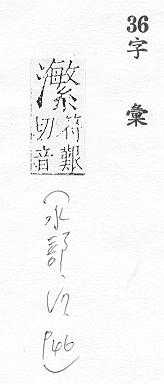 36字彙
瀿
符艱
切音
(水部、17 P46)